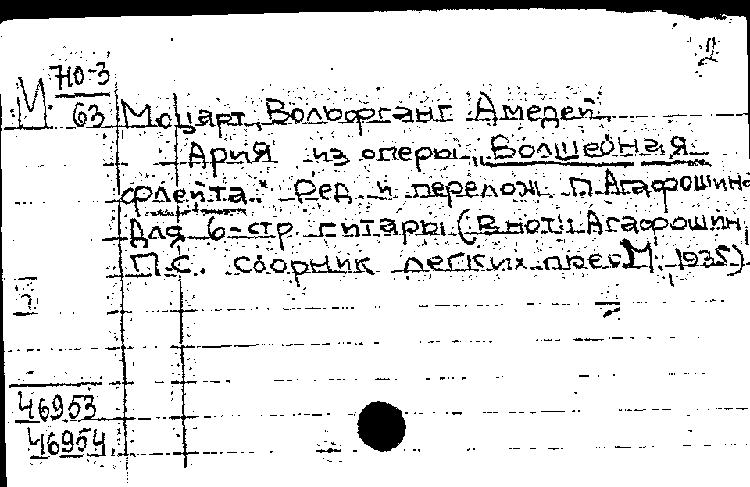 2
М 710-3
63
Моцарт, Вольфганг Амедей
Ария из оперы „Волшебная
флейта." Ред. и перелож. П. Агафошина
для 6-стр. гитары (В нот: Агафошин,
П.С. Сборник легких пьес М. 1935)
46953
46954